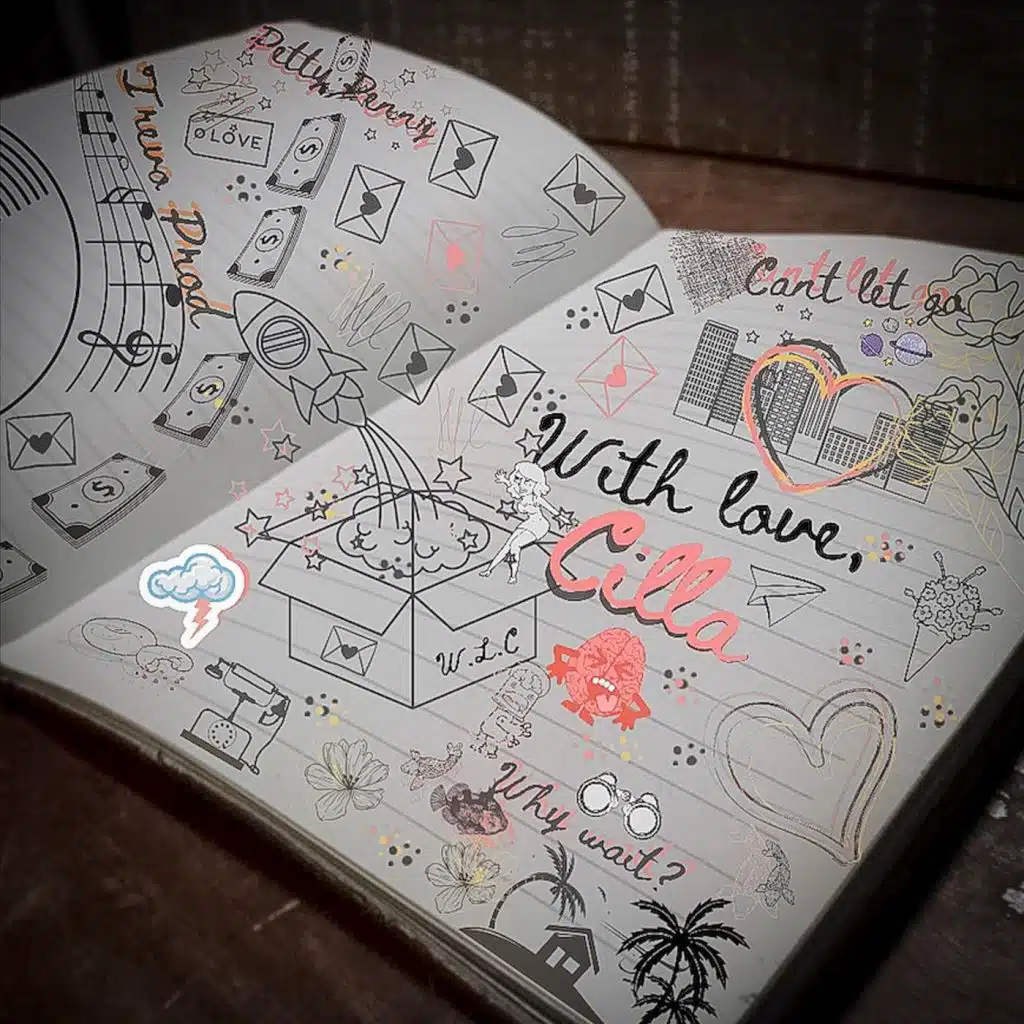 Petty Penny
Prod
LOVE
Cant let go
With love,
Cilla
W.L.C
Why wait?